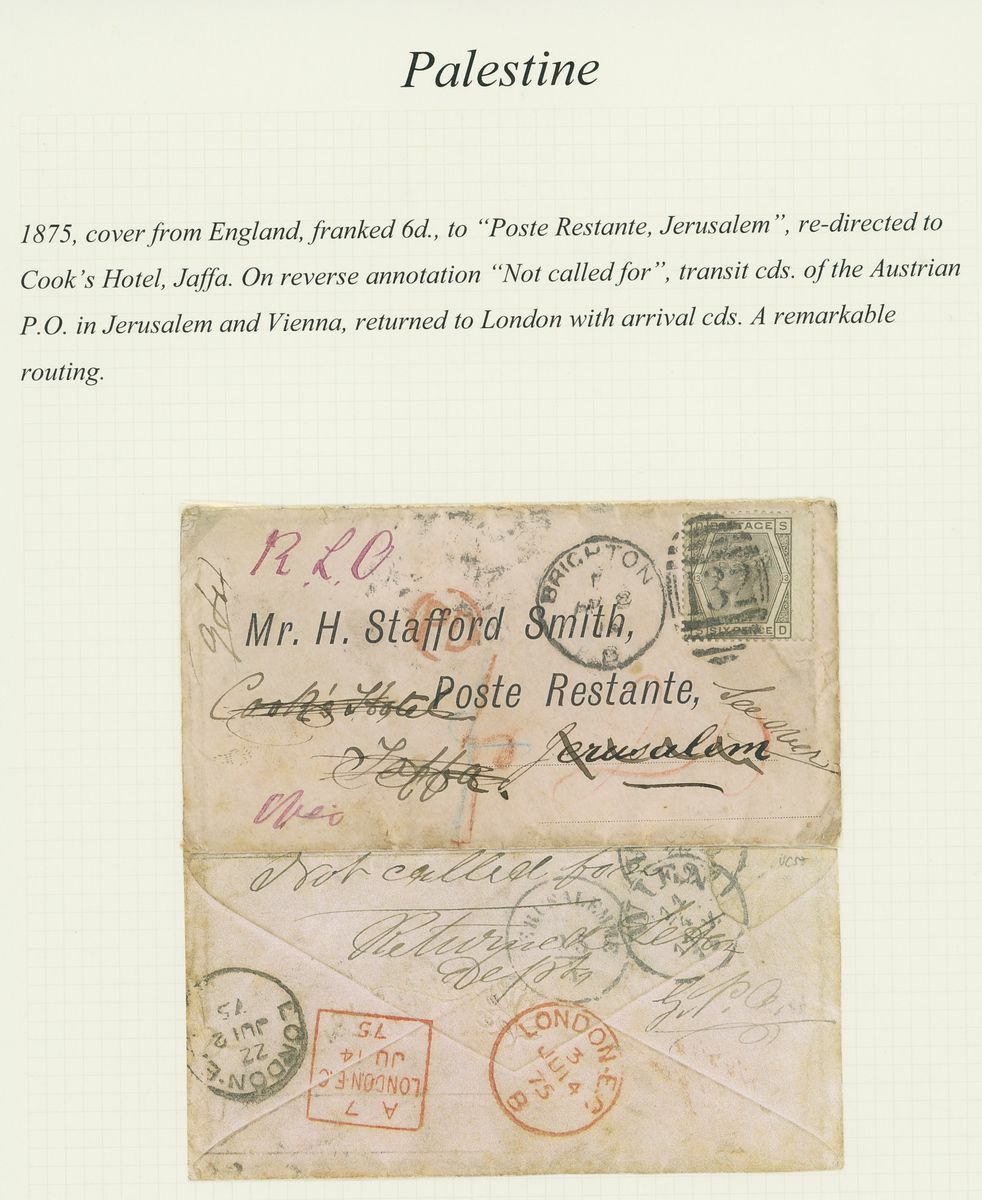 Palestine
1875, cover from England, franked 6d., to “Poste Restante, Jerusalem”, re-directed to
Cook’s Hotel, Jaffa. On reverse annotation “Not called for”, transit cds. of the Austrian
P.O. in Jerusalem and Vienna, returned to London with arrival cds. A remarkable
routing.
R.L.O
BRIGHTON
2
B
POSTAGE
S
132
SIX PENCE
D
Mr. H. Stafford Smith,
Cook's Hotel
Poste Restante,
See over
Jaffa.
Jerusalem
Not called for
WIEN
JERUSALEMME
Returned Letter
Dept
G.P.O.
LONDON.E.
22
JU 12
75
A 7
LONDON.E.C
JU 14
75
LONDON.E.C
3
JU 14
75
B